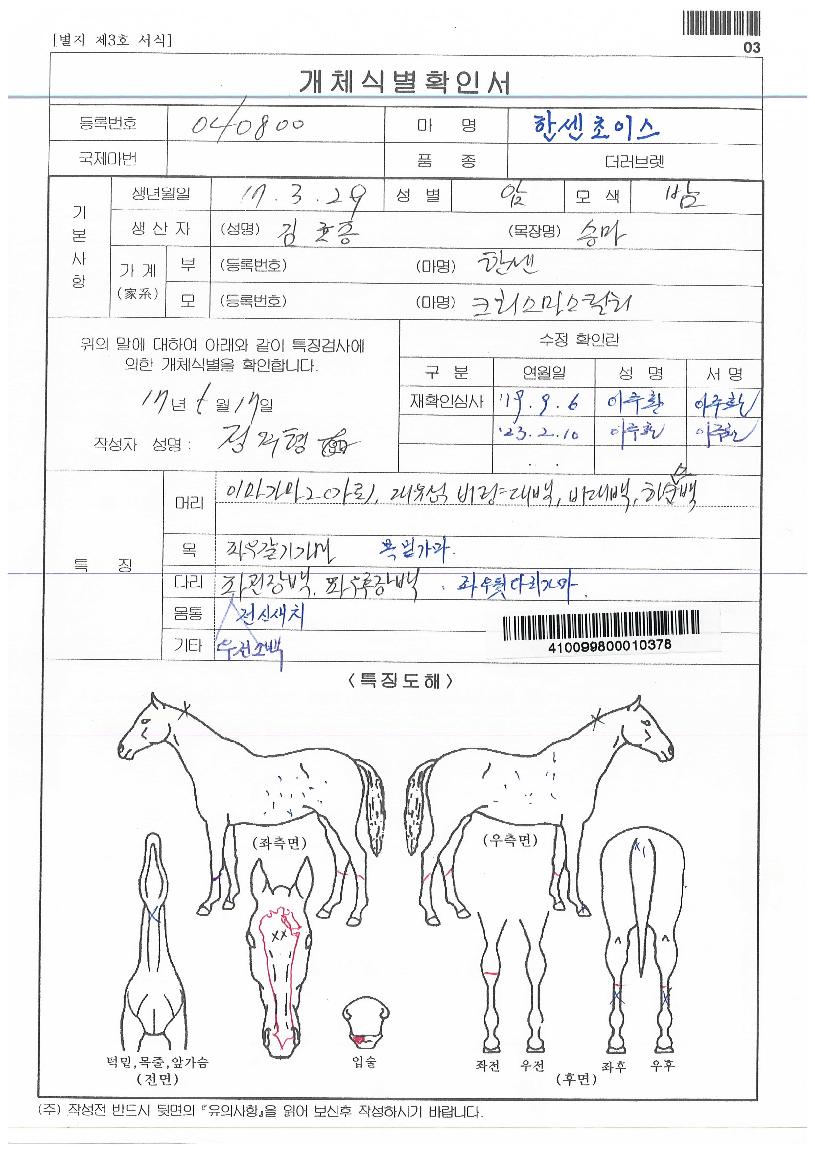 [별지 제3호 서식]
03
개체식별확인서
등록번호 040800 마 명 한센초이스
국제마번 품 종 더러브렛
기본사항
생년월일 17. 3. 29 성 별 암 모 색 밤
생 산 자 (성명) 김 (목장명) 송마
가 계 (家系) 부 (등록번호) (마명) 한센
모 (등록번호) (마명) 크리스마스릴리
위의 말에 대하여 아래와 같이 특징검사에
의한 개체식별을 확인합니다.
17년 월 17일
작성자 성명 :
수정 확인란
구 분 연월일 성 명 서 명
재확인심사 '19. 9. 6 이주환 이주환
'23. 2. 10 이주환 이주환
. .
특 징
머리 이마가마2(가로), 대백, 하 백
목 좌우갈기가마
다리 좌우뒷다리가마.
몸통 전신새치
기타 우전소백
410099800010378
<특징도해>
(좌측면) (우측면)
턱밑,목줄,앞가슴
(전면)
입술
좌전 우전 좌후 우후
(후면)
(주) 작성전 반드시 뒷면의 『유의사항』을 읽어 보신후 작성하시기 바랍니다.